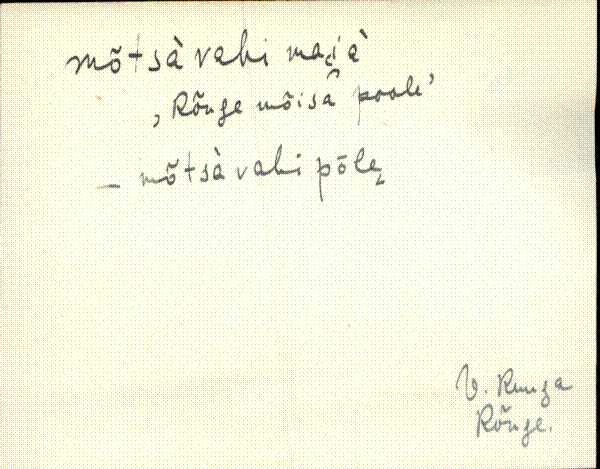 mõtsàvahi mai̯à
‚Rõuge mõisa poole’
– mõtsàvahi pōlę
V. Ruuga
Rõuge.